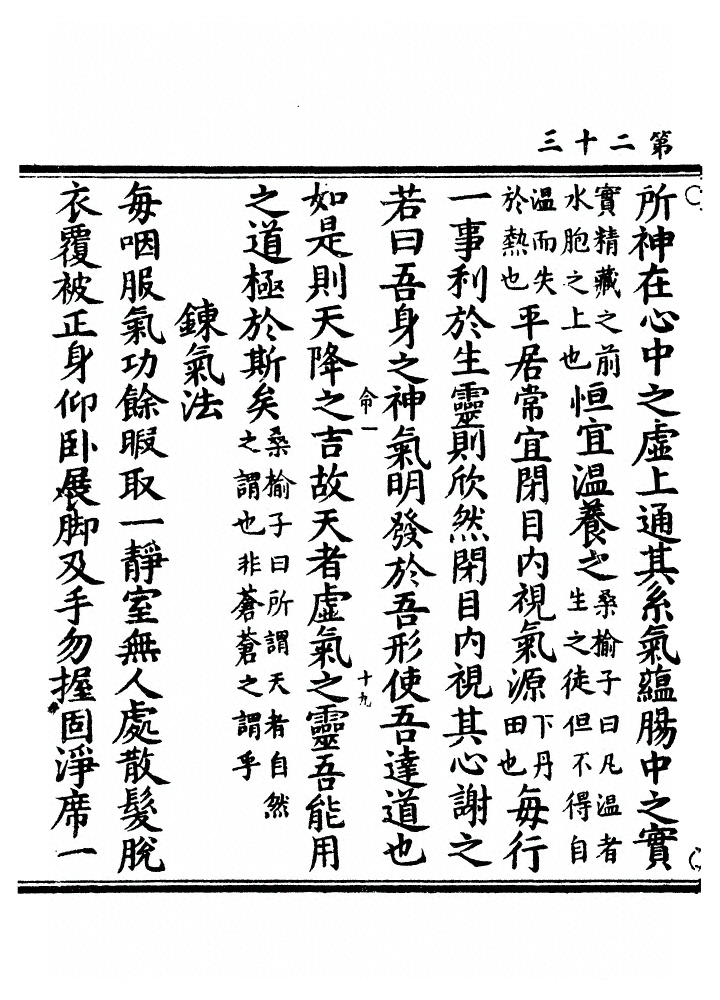 第二十三
所神在心中之虛上通其系氣蘊腸中之實
實精藏之前水胞之上也恒宜溫養之桑榆子曰凡溫者生之徒但不得自
溫而失於熱也平居常宜閉目內視氣源下丹田也每行
一事利於生靈則欣然閉目內視其心謝之
若曰吾身之神氣明發於吾形使吾達道也
命一
十九
如是則天降之吉故天者虛氣之靈吾能用
之道極於斯矣桑榆子曰所謂天者自然之謂也非蒼蒼之謂乎
鍊氣法
每咽服氣功餘暇取一靜室無人處散髮脫
衣覆被正身仰卧展脚及手勿握固淨席一